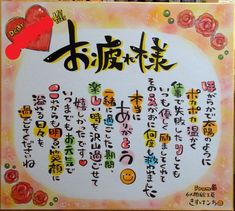 お疲れ様
ほがらかで太陽のように
ポカポカ温かな
仕事で失敗したりしても
いつも優しく励ましてくれて
その◯がおに何度も救われました
本当に
ありがとう
一緒に過ごした期間
楽しい時を沢山過ごせて
嬉しかったです
いつまでもお元気で
これからも明るい笑顔に
溢れる日々を
過ごして下さいね